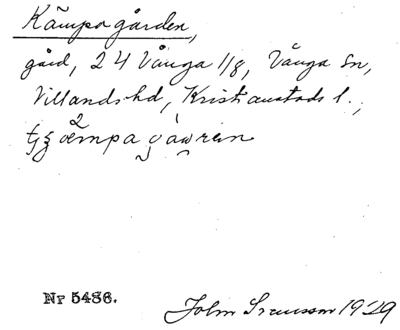 Kämpagården,
gård, 24 Vånga 1/8, Vånga Sn,
Villands hd, Kristianstads l.,
Nr 5486.
John Svensson 1929